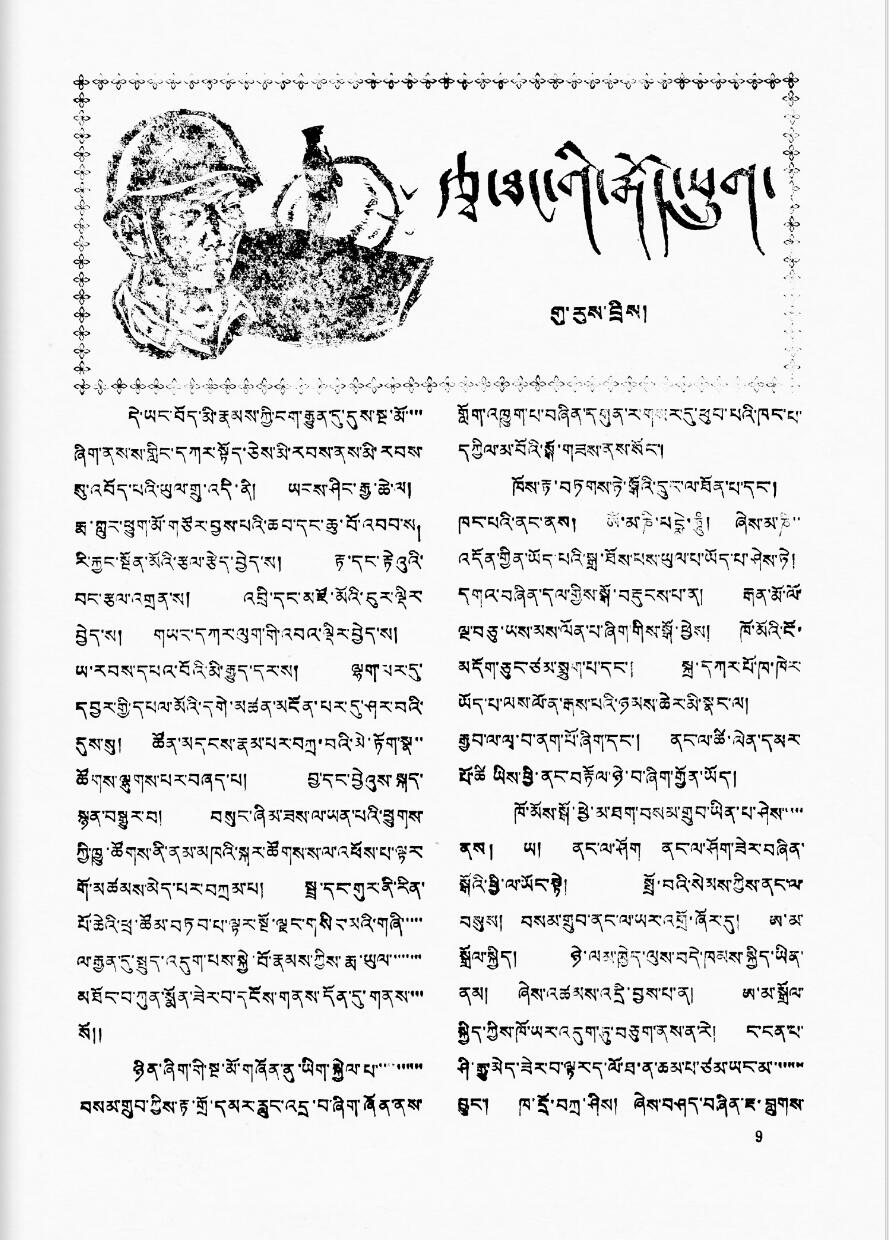 གུ་རུས་བྲིས།
དེ་ཡང་བོད་མི་རྣམས་ཀྱི་ངག་རྒྱུན་དུ་དུས་སྔ་མོ་
ཞིག་ནས་ས་གླིང་དཀར་སྟོད་ཅེས་མི་རབས་ནས་མི་རབས་
སུ་འབོད་པའི་ཡུལ་གྲུ་འདི་ནི། ཡངས་ཤིང་རྒྱ་ཆེ་ལ།
རྨ་ཀླུང་ཕྲུག་མོ་གཙོར་བྱས་པའི་ཆབ་དང་ཆུ་བོ་འབབ་ས།
རི་རྐྱང་སྔོན་མོའི་རྩལ་རྩེད་བྱེད་ས། རྟ་དང་རྟེའུའི་
བང་རྩལ་འགྲན་ས། འབྲི་དང་མཛོ་མོའི་ངུར་ལྡིར་
བྱེད་ས། གཡང་དཀར་ལུག་གི་འབའ་ལྡིར་བྱེད་ས།
ཡ་རབས་དཔའ་བོའི་མི་རྒྱུད་དར་ས། ལྷག་པར་དུ་
དབྱར་གྱི་དཔལ་མོའི་དགེ་མཚན་མངོན་པར་དུ་ཤར་བའི་
དུས་སུ། ཚོན་མདངས་རྣམ་པར་བཀྲ་བའི་མེ་ཏོག་སྣ་
ཚོགས་ལྷུགས་པར་བཞད་པ། བྱ་དང་བྱེའུས་སྐད་
སྙན་བསྒྱུར་བ། བསུང་ཞིམ་ཟས་ལ་ཡན་པའི་ཕྱུགས་
ཀྱི་ཁྱུ་ཚོགས་ནི་ནམ་མཁའི་སྐར་ཚོགས་ས་ལ་འཕོས་པ་ལྟར་
གོ་མཚམས་མེད་པར་བཀྲམ་པ། སྦྲ་དང་གུར་ནི་རིན་
པོ་ཆེའི་ཕྲ་ཚོམ་བཏབ་པ་ལྟར་སྔོ་ལྗང་གསེང་མའི་གཞི་
ལ་རྒྱན་དུ་སྤྲད་འདུག་པས་སྐྱེ་བོ་རྣམས་ཀྱིས་རྨ་ཡུལ་
མཐོང་བ་ཀུན་སྨོན་ཟེར་བ་དངོས་གནས་དོན་དུ་གནས་
སོ།།
ཉིན་ཞིག་གི་སྔ་མོ་གཞོན་ནུ་ཡིག་སྐྱེལ་པ་
བསམ་གྲུབ་ཀྱིས་རྟ་གྲོ་དམར་རླུང་འདྲ་བ་ཞིག་ཞོན་ནས་
གློག་འཁྱུག་པ་བཞིན་དཔུན་ར་གསར་དུ་ཕུབ་པའི་ཁང་པ་
དཀྱིལ་མ་བོའི་སྒོ་གཟས་ནས་སོང་།
ཁོས་རྟ་བཏགས་ཏེ་སྒོའི་དྲུང་ལ་ཐོན་པ་དང་།
ཁང་པའི་ནང་ནས། ཨོཾ་མ་ཎི་པདྨེ་ཧཱུྃ། ཞེས་མ་ཎི་
འདོན་གྱིན་ཡོད་པའི་སྒྲ་ཐོས་པས་ཡུལ་པ་ཡོད་པ་ཤེས་ཏེ།
དགའ་བཞིན་དལ་གྱིས་སྒོ་བརྡུངས་པ་ན། རྒན་མོ་ལོ་
ལྔ་བཅུ་ཡས་མས་ལོན་པ་ཞིག་གིས་སྒོ་ཕྱེས། ཁོ་མོའི་ངོ་
མདོག་ཅུང་ཙམ་སྨུག་པ་དང་། སྐྲ་དཀར་པོ་ཁ་ཁེར་
ཡོད་པ་ལས་ལོན་རྒས་པའི་ཉམས་ཆེར་མི་སྣང་ལ།
རྒྱབ་ལ་ལྭ་བ་ནག་པོ་ཞིག་དང་། ནང་ལ་ཚི་ལེན་དམར་
པོ་ཚི་ཡིས་ཕྱི་ནང་བརྟོལ་ཉེ་བ་ཞིག་གྱོན་ཡོད།
ཁོ་མོས་སྒོ་ཕྱེ་མ་ཐག་བསམ་གྲུབ་ཡིན་པ་ཤེས་
ནས། ཡ། ནང་ལ་ཤོག་ ནང་ལ་ཤོག་ཟེར་བཞིན་
སྒོའི་ཕྱི་ལ་ཡོང་སྟེ། སྤྲོ་བའི་སེམས་ཀྱིས་ནང་ལ་
བསུས། བསམ་གྲུབ་ནང་ལ་ཡར་འགྲོ་ཞོར་དུ། ཨ་མ་
སྒྲོལ་སྐྱིད། ཉེ་ལམ་ཁྱེད་ལུས་བདེ་ཁམས་སྐྱིད་ཡིན་
ནམ། ཞེས་འཚམས་འདྲི་བྱས་པ་ན། ཨ་མ་སྒྲོལ་
སྐྱིད་ཀྱིས་ཁོ་ཡར་འདུག་ཏུ་བཅུག་ནས་ན་རེ། ང་ངན་པ་
ཤི་རྒྱུ་མེད་ཟེར་བ་ལྟར་ད་ལོ་ཐ་ན་ཆམ་པ་ཙམ་ཡང་མ་
བྱུང་། ཁ་དྲོ་བཀྲ་ཤིས། ཞེས་བཤད་བཞིན་ཇ་བླུགས་
9